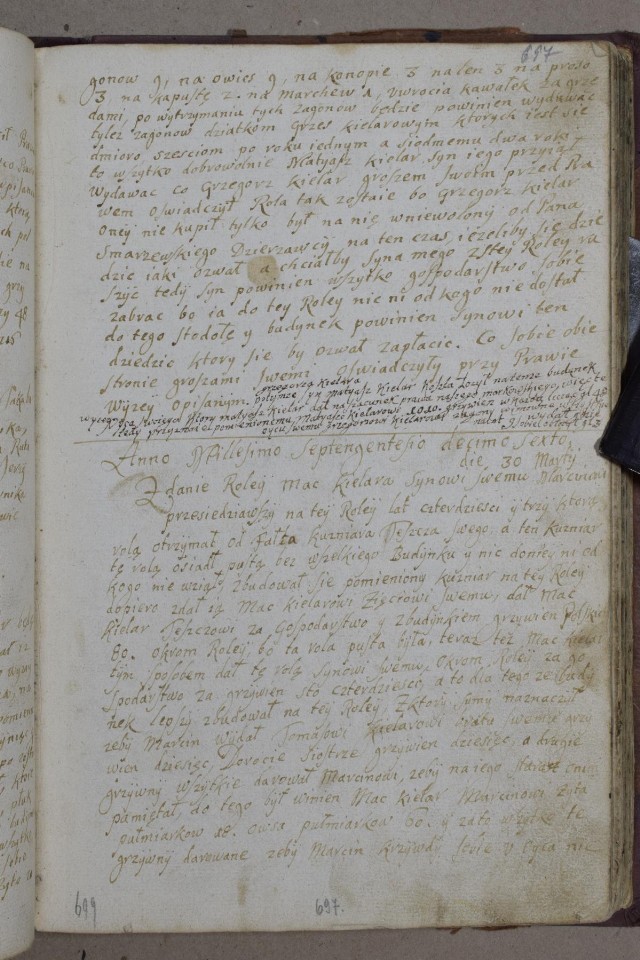 697
gonow 9, na owies 9, na konopie 3 na len 3 na proso
3, na kapustę 2. na marchew 1, uwrocia kawałek za grze
dami, po wytrzymaniu tych zagonow będzie powinien wydawac
tylez zagonow dziatkom Grzes kielarowym ktorych iest sie
dmioro, szesciom po roku iednym a siodmemu dwa roki,
to wszytko dobrowolnie Matyasz kielar Syn iego przyiął
wydawac co Grzegorz kielar groszem swoim przed Pra
wem oswiadczył Rola tak zostaie bo Grzegorz kielar
oney nie kupił tylko był na nię wniewolony od Pana
Smarzewskiego Dzierzawcy, na ten czas, iezeliby się dzie
dzic iaki ozwał a chciałby Syna mego z tey Roley ru
szyc tedy Syn powinien wszytko gospodarstwo sobie
zabrac bo ia do tey Roley nie ni od kogo nie dostał
do tego stodołę y budynek powinien Synowi ten
dziedzic ktory sie by ozwał zapłacic. Co sobie obie
stronie groszami swemi oswiadczyły przy Prawie
Wyzey opisanym.
Matyasz kielar koszta łozył na tenze budynek
Matyasz kielar dał na szacunek prawa naszego
Matyasz kielarowi grzywien
Anno Millesimo Septengentesio decimo Sexto,
die 30 Marty
Zdanie Roley Mac kielara Synowi swemu Marcinowi
przesiedziawszy na tey Roley lat czterdziesci y trzy ktorą
rolą otrzymał od Fałta kuzniara Tescza swego, a ten kuzniar
tę rolą osiadł pustą bez wszelkiego Budynku y nic do niey ni od
kogo nie wziął, Zbudował się pomieniony kuzniar na tey Roley
dopiero zdał ią Mac kielarowi Zięciowi swemu, dał Mac
kielar Tesczowi za Gospodarstwo y Zbudynkiem grzywien Polskich
80. okrom Roley, bo ta rola pusta była, teraz tez Mac kielar
tym sposobem dał tę rolą Synowi swemu, okrom Roley za go
spodarstwo za grzywien sto czterdziesci, a to dla tego ze budy
nek lepszy zbudował na tey Roley, z ktory sumy naznaczył
zeby Marcin wydał Tomaszowi kielarowi bratu swemu grzy
wien dziesięc, Dorocie Siostrze grzywien dziesięc, a drugie
grzywny wszytkie darował Marcinowi, zeby na iego starosc on
pamiętał, do tego był winien Mac kielar Marcinowi zyta
pułmiarkow 18. owsa pułmiarkow 60. y zato wszytko te
grzywny darowane zeby Marcin krzywdy sobie u Oyca nie
699
697.